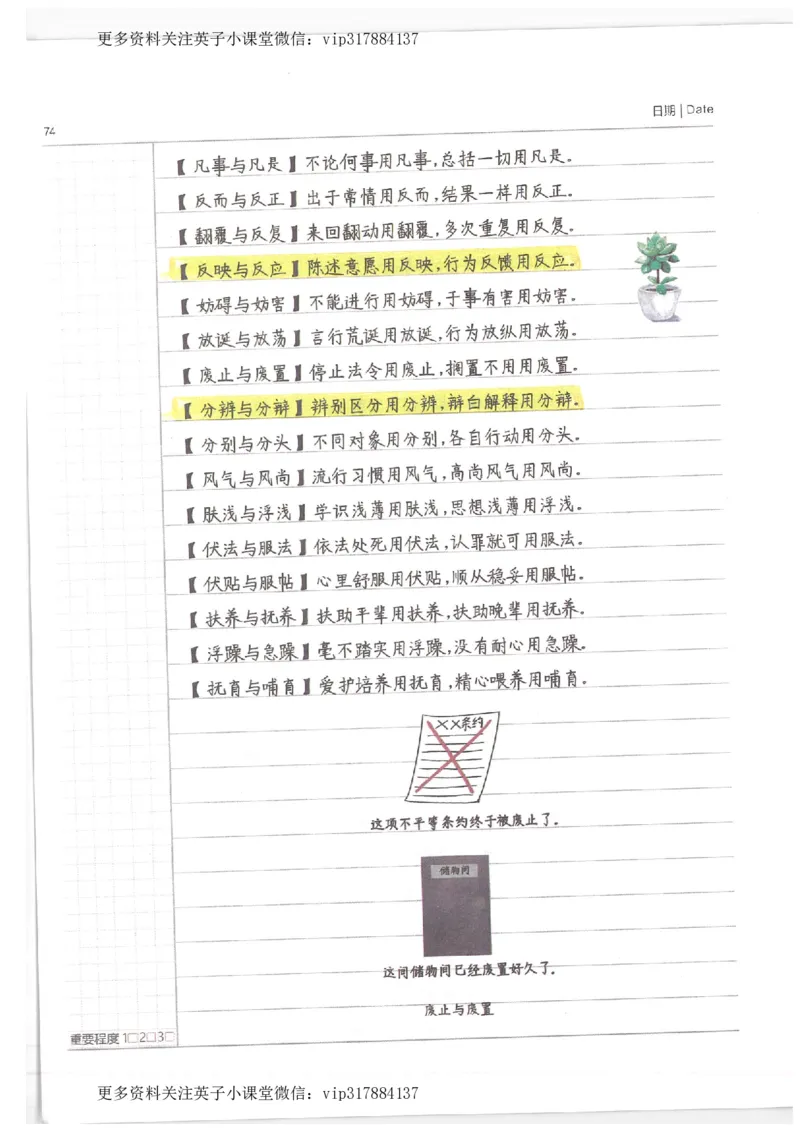 更多资料关注英子小课堂微信：vip317884137
日期 | Date
74
【凡事与凡是】不论何事用凡事,总括一切用凡是。
【反而与反正】出于常情用反而,结果一样用反正。
【翻覆与反复】来回翻动用翻覆,多次重复用反复。
【反映与反应】陈述意愿用反映,行为反馈用反应。
【妨碍与妨害】不能进行用妨碍,于事有害用妨害。
【放诞与放荡】言行荒诞用放诞,行为放纵用放荡。
【废止与废置】停止法令用废止,搁置不用用废置。
【分辨与分辩】辨别区分用分辨,辩白解释用分辩。
【分别与分头】不同对象用分别,各自行动用分头。
【风气与风尚】流行习惯用风气,高尚风气用风尚。
【肤浅与浮浅】学识浅薄用肤浅,思想浅薄用浮浅。
【伏法与服法】依法处死用伏法,认罪就可用服法。
【伏贴与服帖】心里舒服用伏贴,顺从稳妥用服帖。
【扶养与抚养】扶助平辈用扶养,扶助晚辈用抚养。
【浮躁与急躁】毫不踏实用浮躁,没有耐心用急躁。
【抚育与哺育】爱护培养用抚育,精心喂养用哺育。
××条约
这项不平等条约终于被废止了。
储物间
这间储物间已经废置好久了。
废止与废置
重要程度 1□2□3□
更多资料关注英子小课堂微信：vip317884137